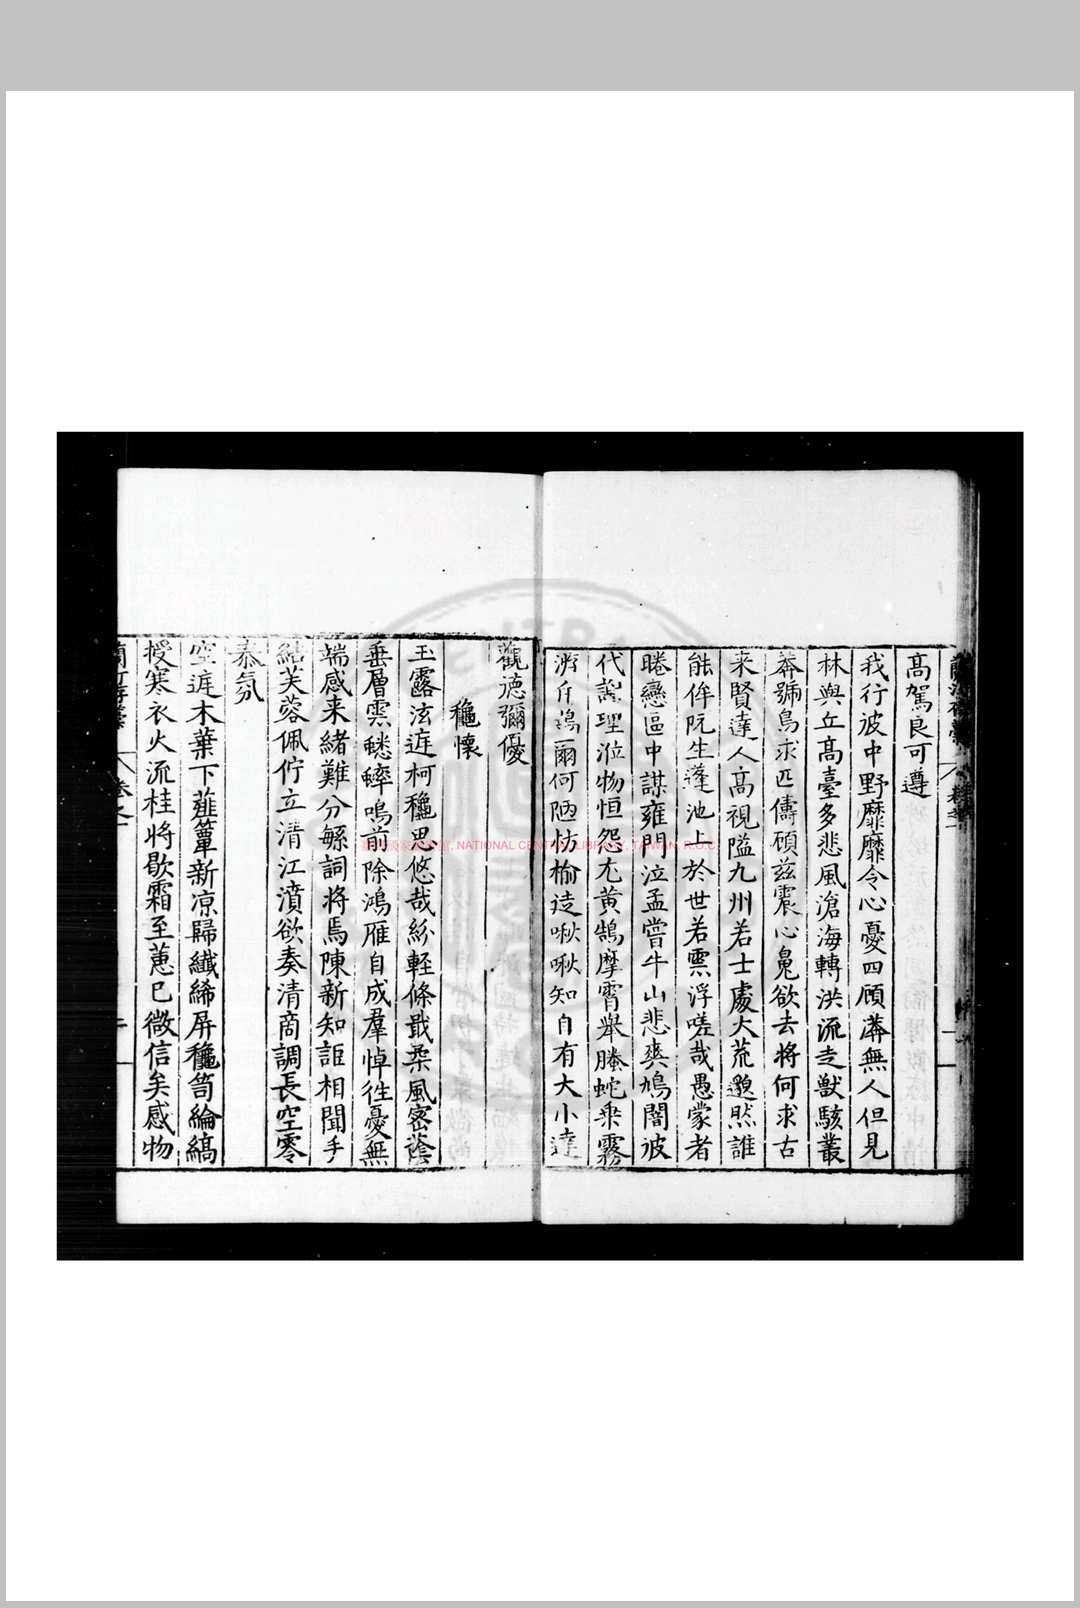 高駕良可遵
我行彼中野靡靡令心憂四顧漭無人但見
林與丘高臺多悲風滄海轉洪流走獸駭叢
莽號鳥求匹儔頋玆震心䰟欲去將何求古
来賢達人高視隘九州若士處大荒邈然誰
能侔阮生蓬池上於世若雲浮嗟哉愚蒙者
睠戀區中謀雍門泣孟嘗牛山悲爽鳩闇彼
代謝理涖物恒怨尤黄鵠摩霄舉螣蛇乗霧
游斥鷃爾何陋枋榆逞啾啾知自有大小達
觀德彌優
龝懷
玉露泫遅柯龝思悠哉紛輕條戢柔風密蔭
垂層雲蟋蟀鳴前除鴻雁自成羣悼徃憂無
端感来緒難分緐詞将焉陳新知詎相聞手
結芙蓉佩佇立清江濆欲奏清商調長空零
泰氛
空遅木葉下薤簟新凉歸纖絺屏龝笥綸縞
授寒衣火流桂将歇霜至蕙已微信矣感物
NATIONAL CENTRAL LIBRARY, TAIWAN, R.O.C.